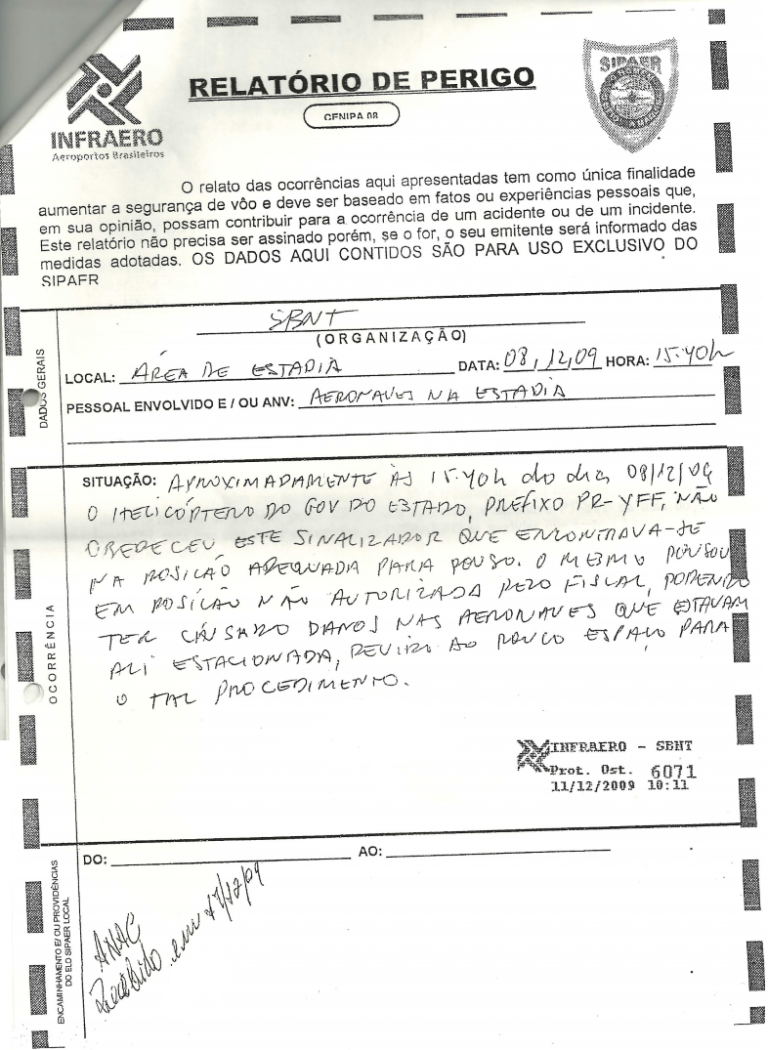 RELATÓRIO DE PERIGO
CENIPA 08
SIPAER
INFRAERO
Aeroportos Brasileiros
O relato das ocorrências aqui apresentadas tem como única finalidade
aumentar a segurança de vôo e deve ser baseado em fatos ou experiências pessoais que,
em sua opinião, possam contribuir para a ocorrência de um acidente ou de um incidente.
Este relatório não precisa ser assinado porém, se o for, o seu emitente será informado das
medidas adotadas. OS DADOS AQUI CONTIDOS SÃO PARA USO EXCLUSIVO DO
SIPAER
DADOS GERAIS
SBNT
(ORGANIZAÇÃO)
LOCAL: ÁREA DE ESTADIA DATA: 08/12/09 HORA: 15:40h
PESSOAL ENVOLVIDO E / OU ANV: AERONAVES NA ESTADIA
OCORRÊNCIA
SITUAÇÃO: APROXIMADAMENTE ÀS 15:40h do dia 08/12/09
O HELICÓPTERO DO GOV DO ESTADO, PREFIXO PR-YFF, NÃO
OBEDECEU ESTE SINALIZADOR QUE ENCONTRAVA-SE
NA POSIÇÃO ADEQUADA PARA POUSO. O MESMO POUSOU
EM POSIÇÃO NÃO AUTORIZADA PELO FISCAL, PODENDO
TER CAUSADO DANOS NAS AERONAVES QUE ESTAVAM
ALI ESTACIONADA, DEVIDO AO POUCO ESPAÇO PARA
O TAL PROCEDIMENTO.
INFRAERO - SBNT
Prot. Ost. 6071
11/12/2009 10:11
ENCAMINHAMENTO E/ OU PROVIDÊNCIAS
DO ELO SIPAER LOCAL
DO: AO:
ANAC
Recebido em 17/12/09